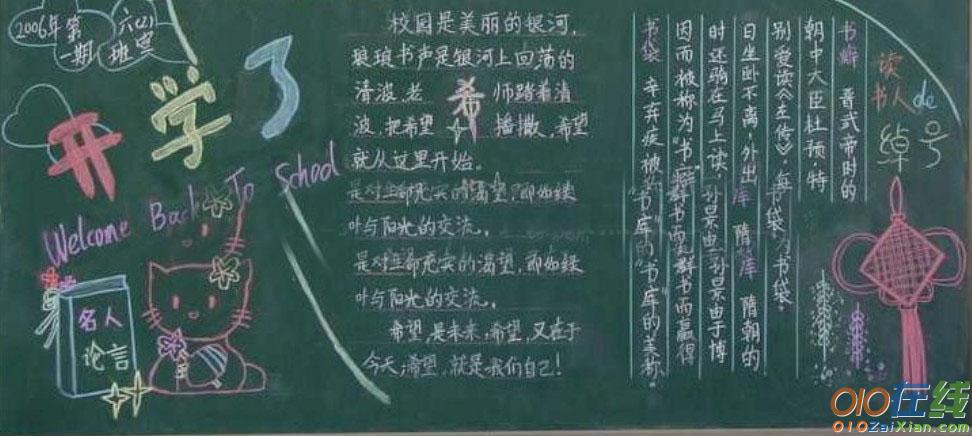 2006年第
一期
六(2)
班宣
开学了
Welcome Back To School
名人
论言
校园是美丽的银河,
琅琅书声是银河上回荡的
清波,老 师踏着清
波,把希望 播撒,希望
就从这里开始。
希
是对生命充实的渴望,即如绿
叶与阳光的交流。
是对生命充实的渴望,即如绿
叶与阳光的交流。
希望,是未来,希望,又在于
今天,希望,就是我们自己!
读
书人de
绰号
书癖 晋武帝时的
朝中大臣杜预,特
别爱读《左传》,每
日坐卧不离,外出
时还驹在马上读,
因而被称为"书
书袋
袋为书袋。
库 隋 库 隋朝的
孙景由 孙景由于博
群书而 群书而赢得
"书库"的"书库"的美称。
010在线
010ZaiXian.com